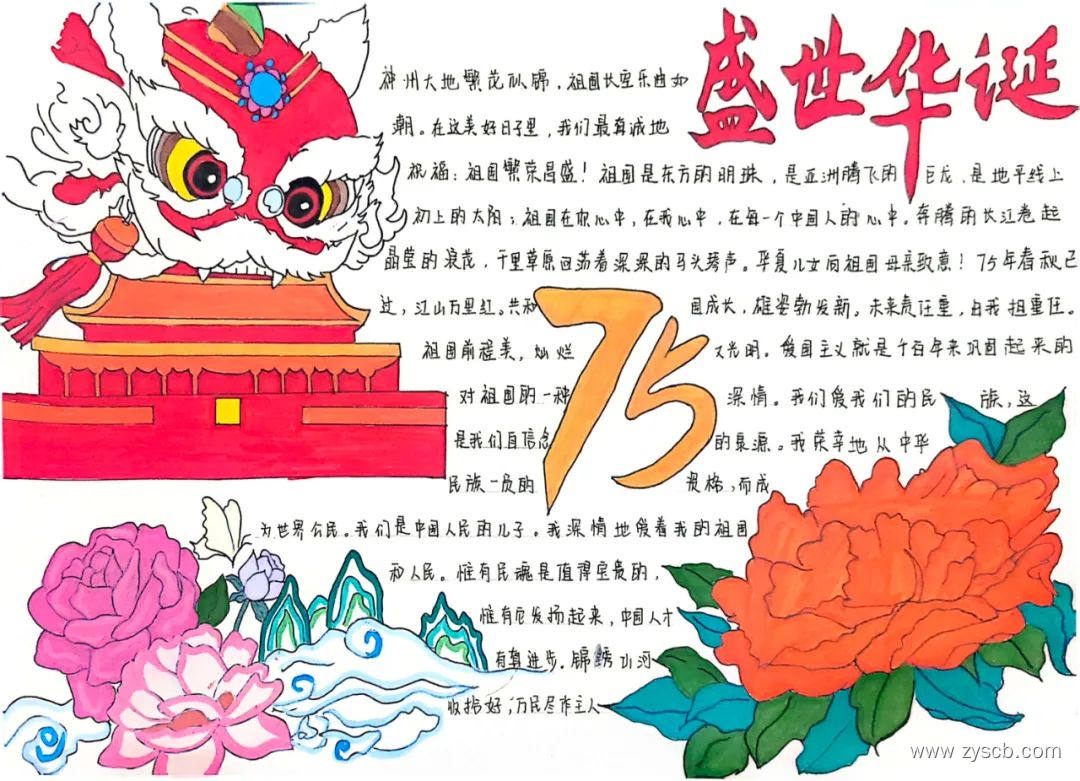 盛世华诞
神州大地繁花似锦，祖国长空乐曲如
潮。在这美好日子里，我们最真诚地
祝福：祖国繁荣昌盛！祖国是东方的明珠，是亚洲腾飞的巨龙，是地平线上
初上的太阳；祖国在你心中，在我心中，在每一个中国人的心中。奔腾的长江卷起
晶莹的浪花，千里草原回荡着深深的马头琴声。华夏儿女向祖国母亲致意！75年春秋已
过，江山万里红。共和国成长，雄姿勃发新。未来责任重，自我担重任。
祖国前程美，灿烂又光明。爱国主义就是千百年来巩固起来的
对祖国的一种深情。我们爱我们的民族，这
是我们自信念的泉源。我荣幸地从中华
民族一员的资格，而成
为世界公民。我们是中国人民的儿子。我深情地爱着我的祖国
和人民。惟有民魂是值得宝贵的，
惟有它发扬起来，中国人才
有真进步。锦绣山河
收拾好，万民尽作主人
75
www.zyscb.com